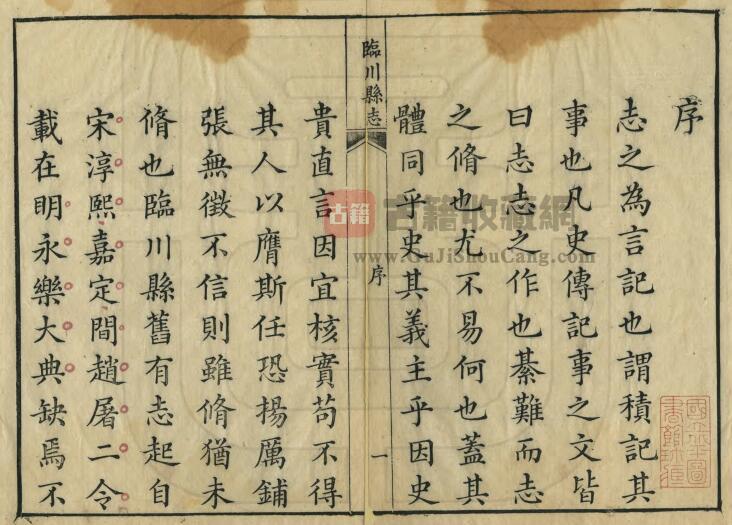 序
志之為言記也謂積記其
事也凡史傳記事之文皆
曰志志之作也綦難而志
之脩也尤不易何也蓋其
體同乎史其義主乎因史
臨川縣志
序
一
貴直言因宜核實苟不得
其人以膺斯任恐揚厲鋪
張無徵不信則雖脩猶未
脩也臨川縣舊有志起自
宋淳熙嘉定間趙屠二令
載在明永樂大典缺焉不
古籍
古籍收藏網
www.GuJiShouCang.com